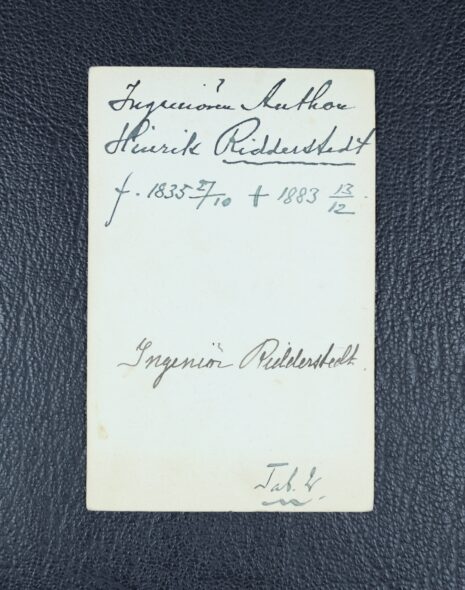 Ingeniören Anthon
Hinrik Ridderstedt
f. 1835 27/10 † 1883 13/12.
Ingeniör Ridderstedt.
Tab.